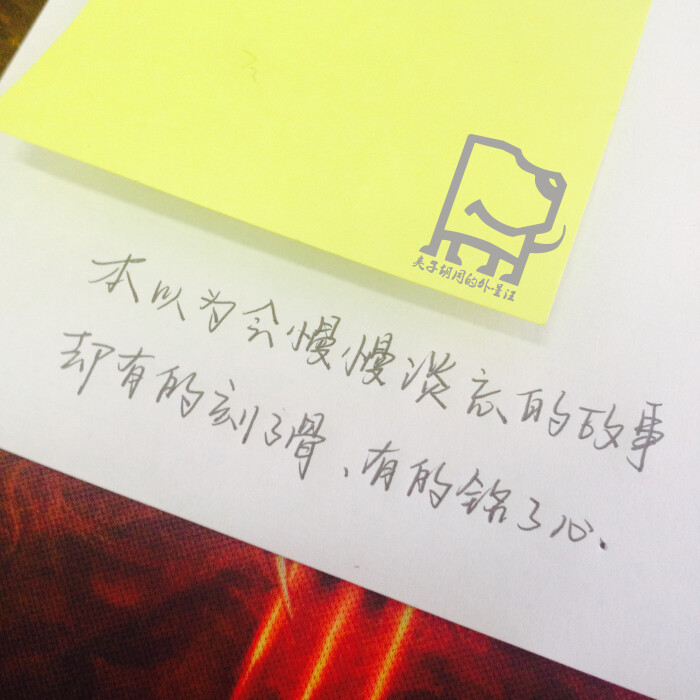 夹子胡同的外星汪
本以为会慢慢淡忘的故事
却有的刻了骨、有的铭了心.